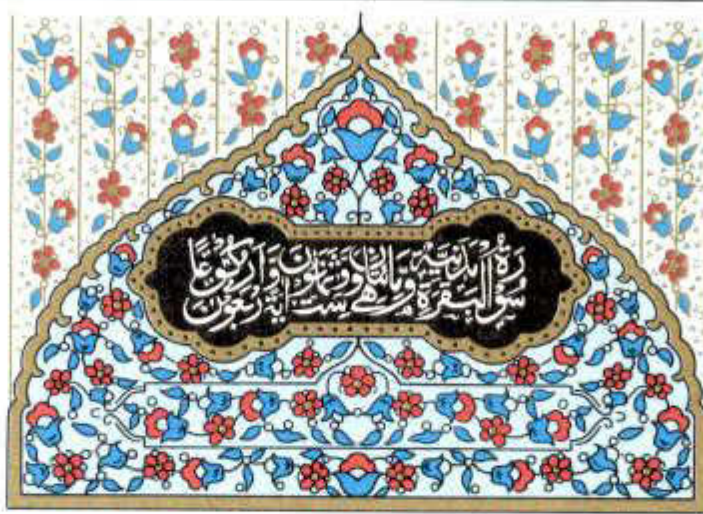 سورة البقرة مدنية وهي مائتان وست وثمانون اية واربعون ركوعا